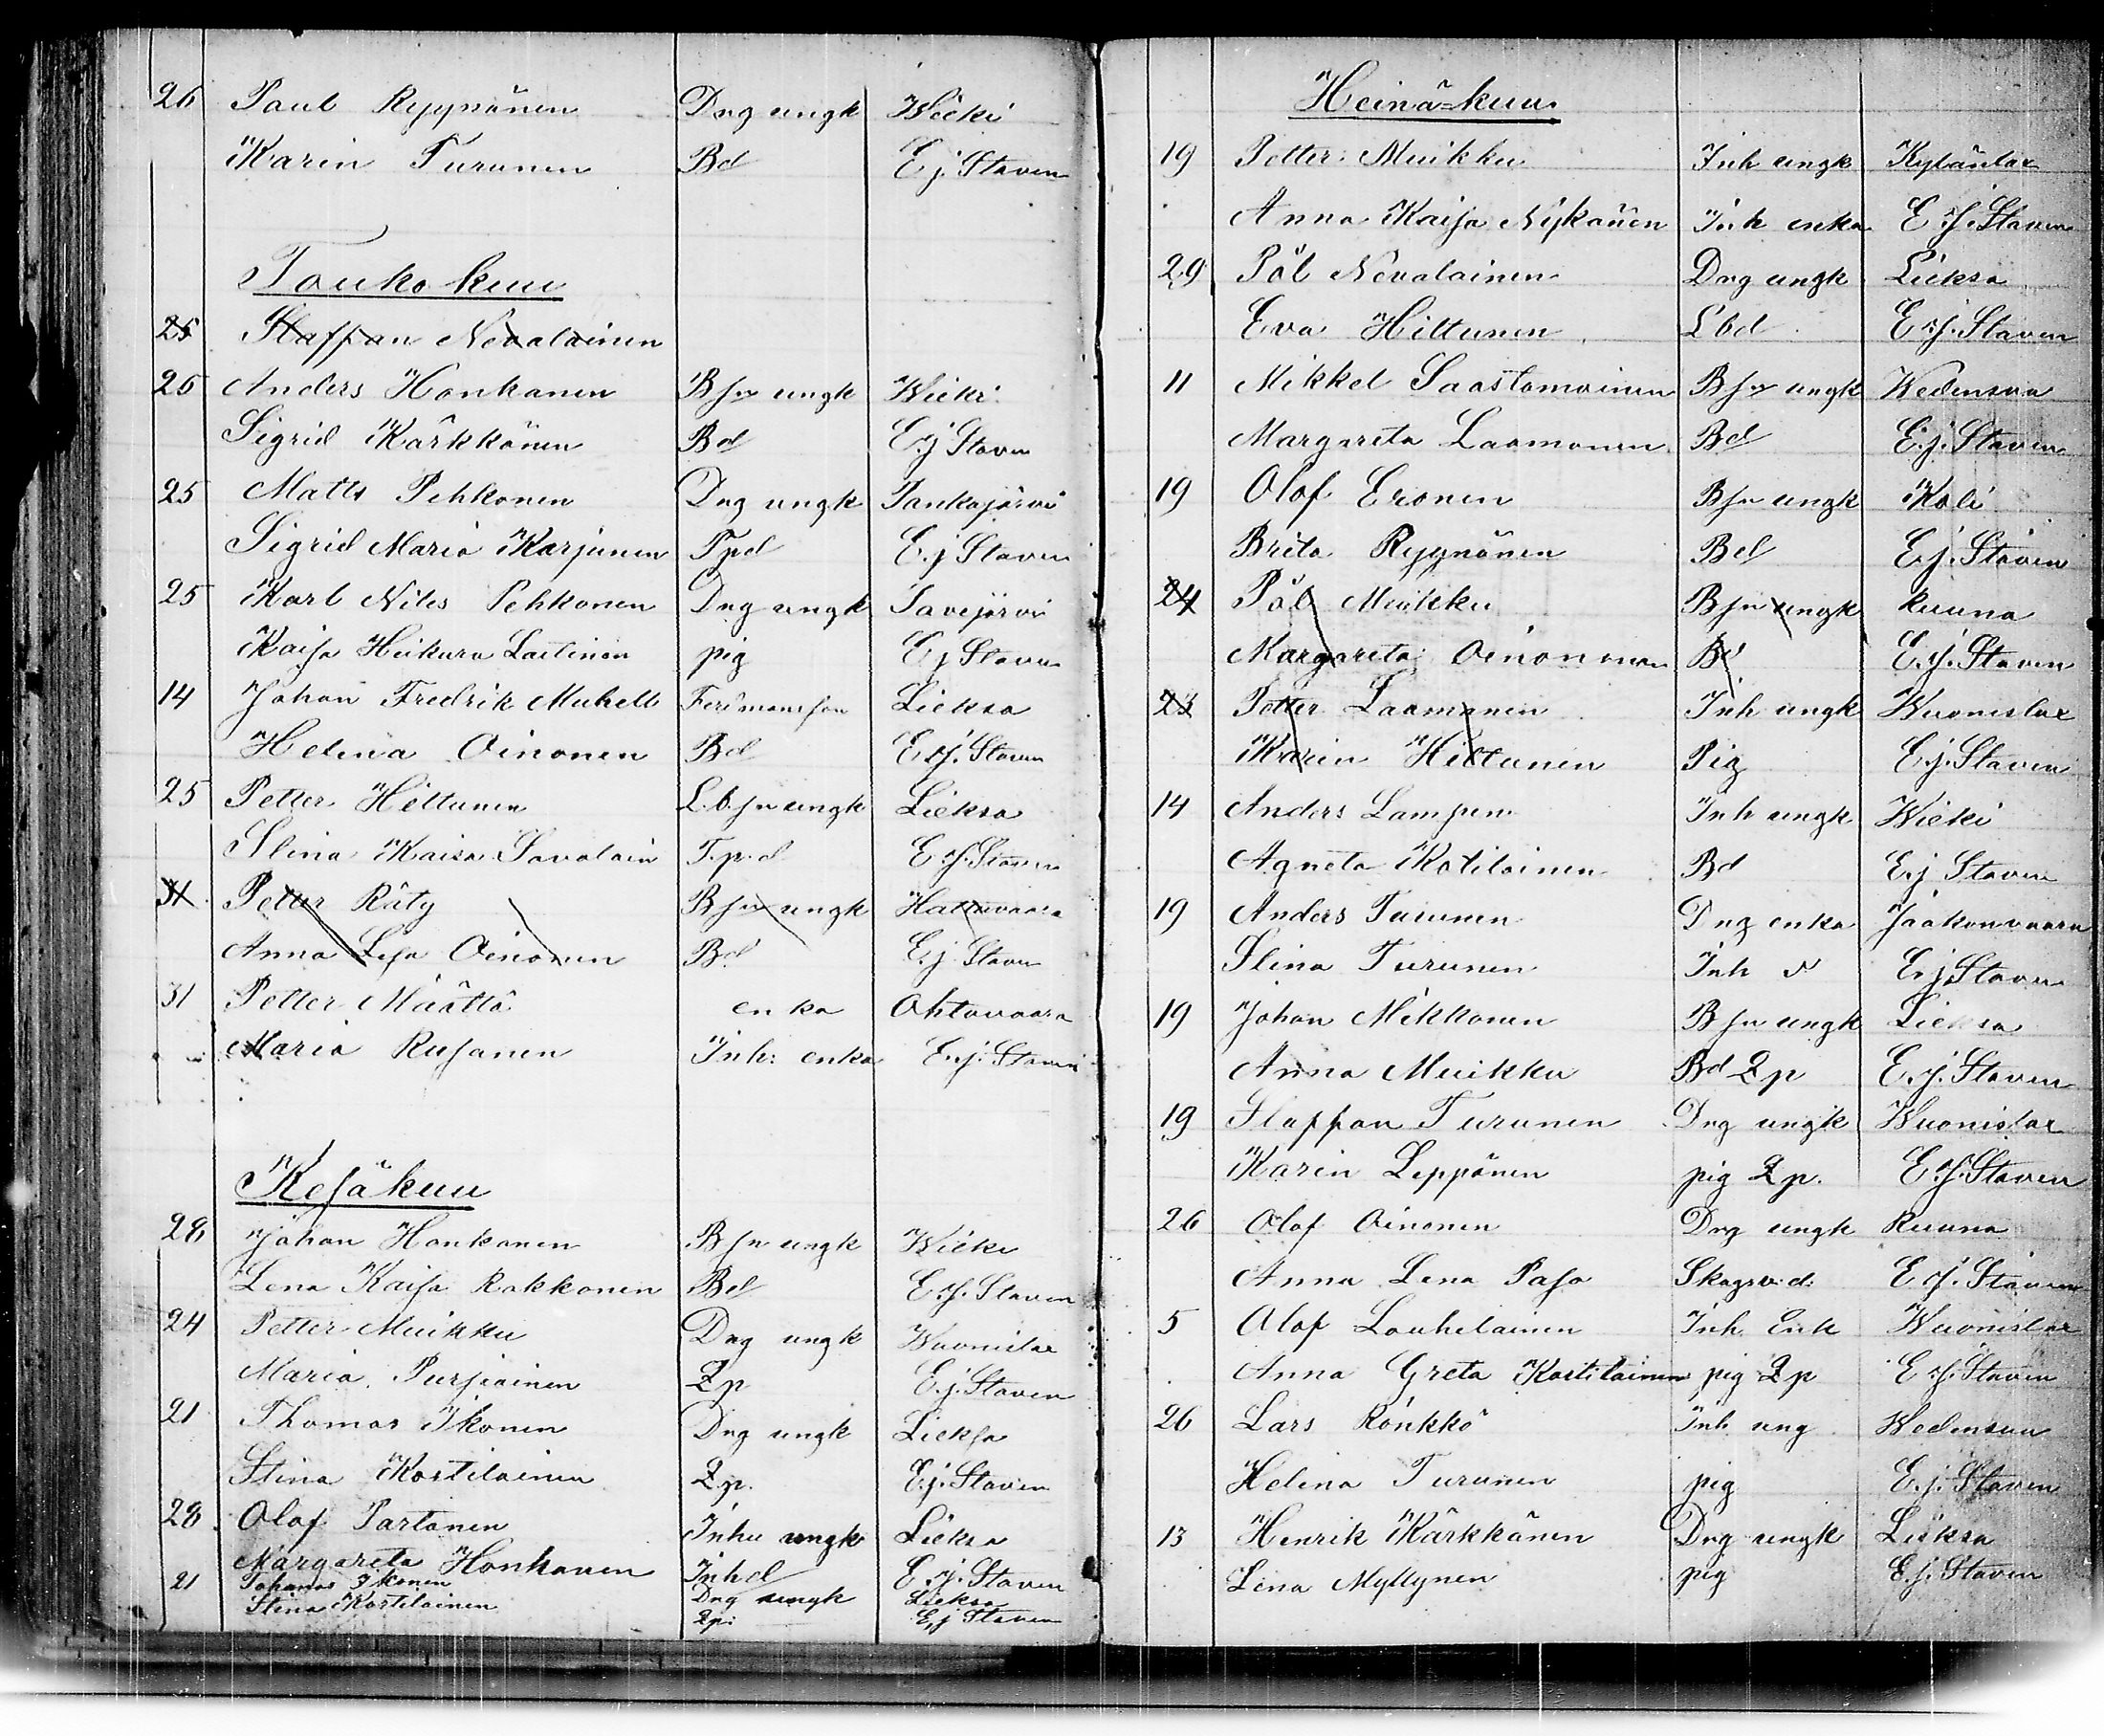 26 Paul Ryynönen Dng ungk Wieki
Karin Turunen Bd Ej. Staven
Toukokuu
25 Staffan Nevalainen
25 Anders Honkanen Bsn ungk Wieki
Sigrid Kärkkönen Bd E.j Staven
25 Matts Pehkonen Dng ungk Pankajärvi
Sigrid Maria Karjunen Tpd E.j Staven
25 Karl Nils Pehkonen Dng ungk Savijärvi
Kaisa Heikura Laitinen pig Ej Staven
14 Johan Fredrik Muhell Lieksa
Helena Oinonen Bd E.j. Staven
25 Petter Hiltunen L.b.sn ungk Lieksa
Stina Kaisa Savolain T.p.d E.j. Staven
31 Petter Räty Bsn ungk Hattuvaara
Anna Lisa Oinonen Bd E.j. Staven
31 Petter Määttä enka Ahtovaara
Maria Rusanen Inh: enka E.j. Staven
Kesäkuu
28 Johan Honkanen Bsn ungk Wieki
Lena Kaisa Rakkonen Bd E.j. Staven
24 Petter Muikku Dng ungk Wuonislax
Maria Purjiainen Qp E.j. Staven
21 Thomas Ikonen Dng ungk Lieksa
Stina Kortilainen Qp. E.j. Staven
28 Olof Partanen Inhu ungk Lieksa
Margareta Honkanen Inhd E.j. Staven
21 Johanes Ikonen Dng ungk Lieksa
Stina Kortilainen Qp: E.j Staven
Heinä=kuu
19 Petter Muikku Inh ungk Kylänlax
Anna Kaisa Nykänen Inh enka E.j. Staven
29 Pål Nevalainen Dng ungk Lieksa
Eva Hiltunen Lbd E.j. Staven
11 Mikkel Saastamoinen Bsn ungk Wedensuu
Margareta Laamanen Bd E.j. Staven
19 Olof Eronen Bsn ungk Koli
Brita Ryynönen Bd E.j. Staven
24 Pål Muikku Bsn ungk Ruuna
Margareta Oinonen Bd E.j. Staven
23 Petter Laamanen Inh ungk Wuonislax
Karin Hiltunen Pig E.j. Staven
14 Anders Lampen Inh ungk Wieki
Agneta Kotilainen Bd E.j Staven
19 Anders Turunen Dng enka Jaakonvaara
Stina Turunen Inh E.j Staven
19 Johan Mikkonen Bsn ungk Lieksa
Anna Muikku Bd Qp E.j. Staven
19 Staffan Turunen Dng ungk Wuonislax
Karin Leppönen pig Qp. E.j. Staven
26 Olof Oinonen Dng ungk Ruuna
Anna Lena Pasa Skogsv.d. E.j. Staven
5 Olof Louhelainen Inh Enk Wuonislax
Anna Greta Kortilainen pig Qp E.j. Staven
26 Lars Rönkkö Inh ung Wedensuu
Helena Turunen pig E.j. Staven
13 Henrik Kärkkänen Dng ungk Lieksa
Lena Myllynen pig E.j. Staven